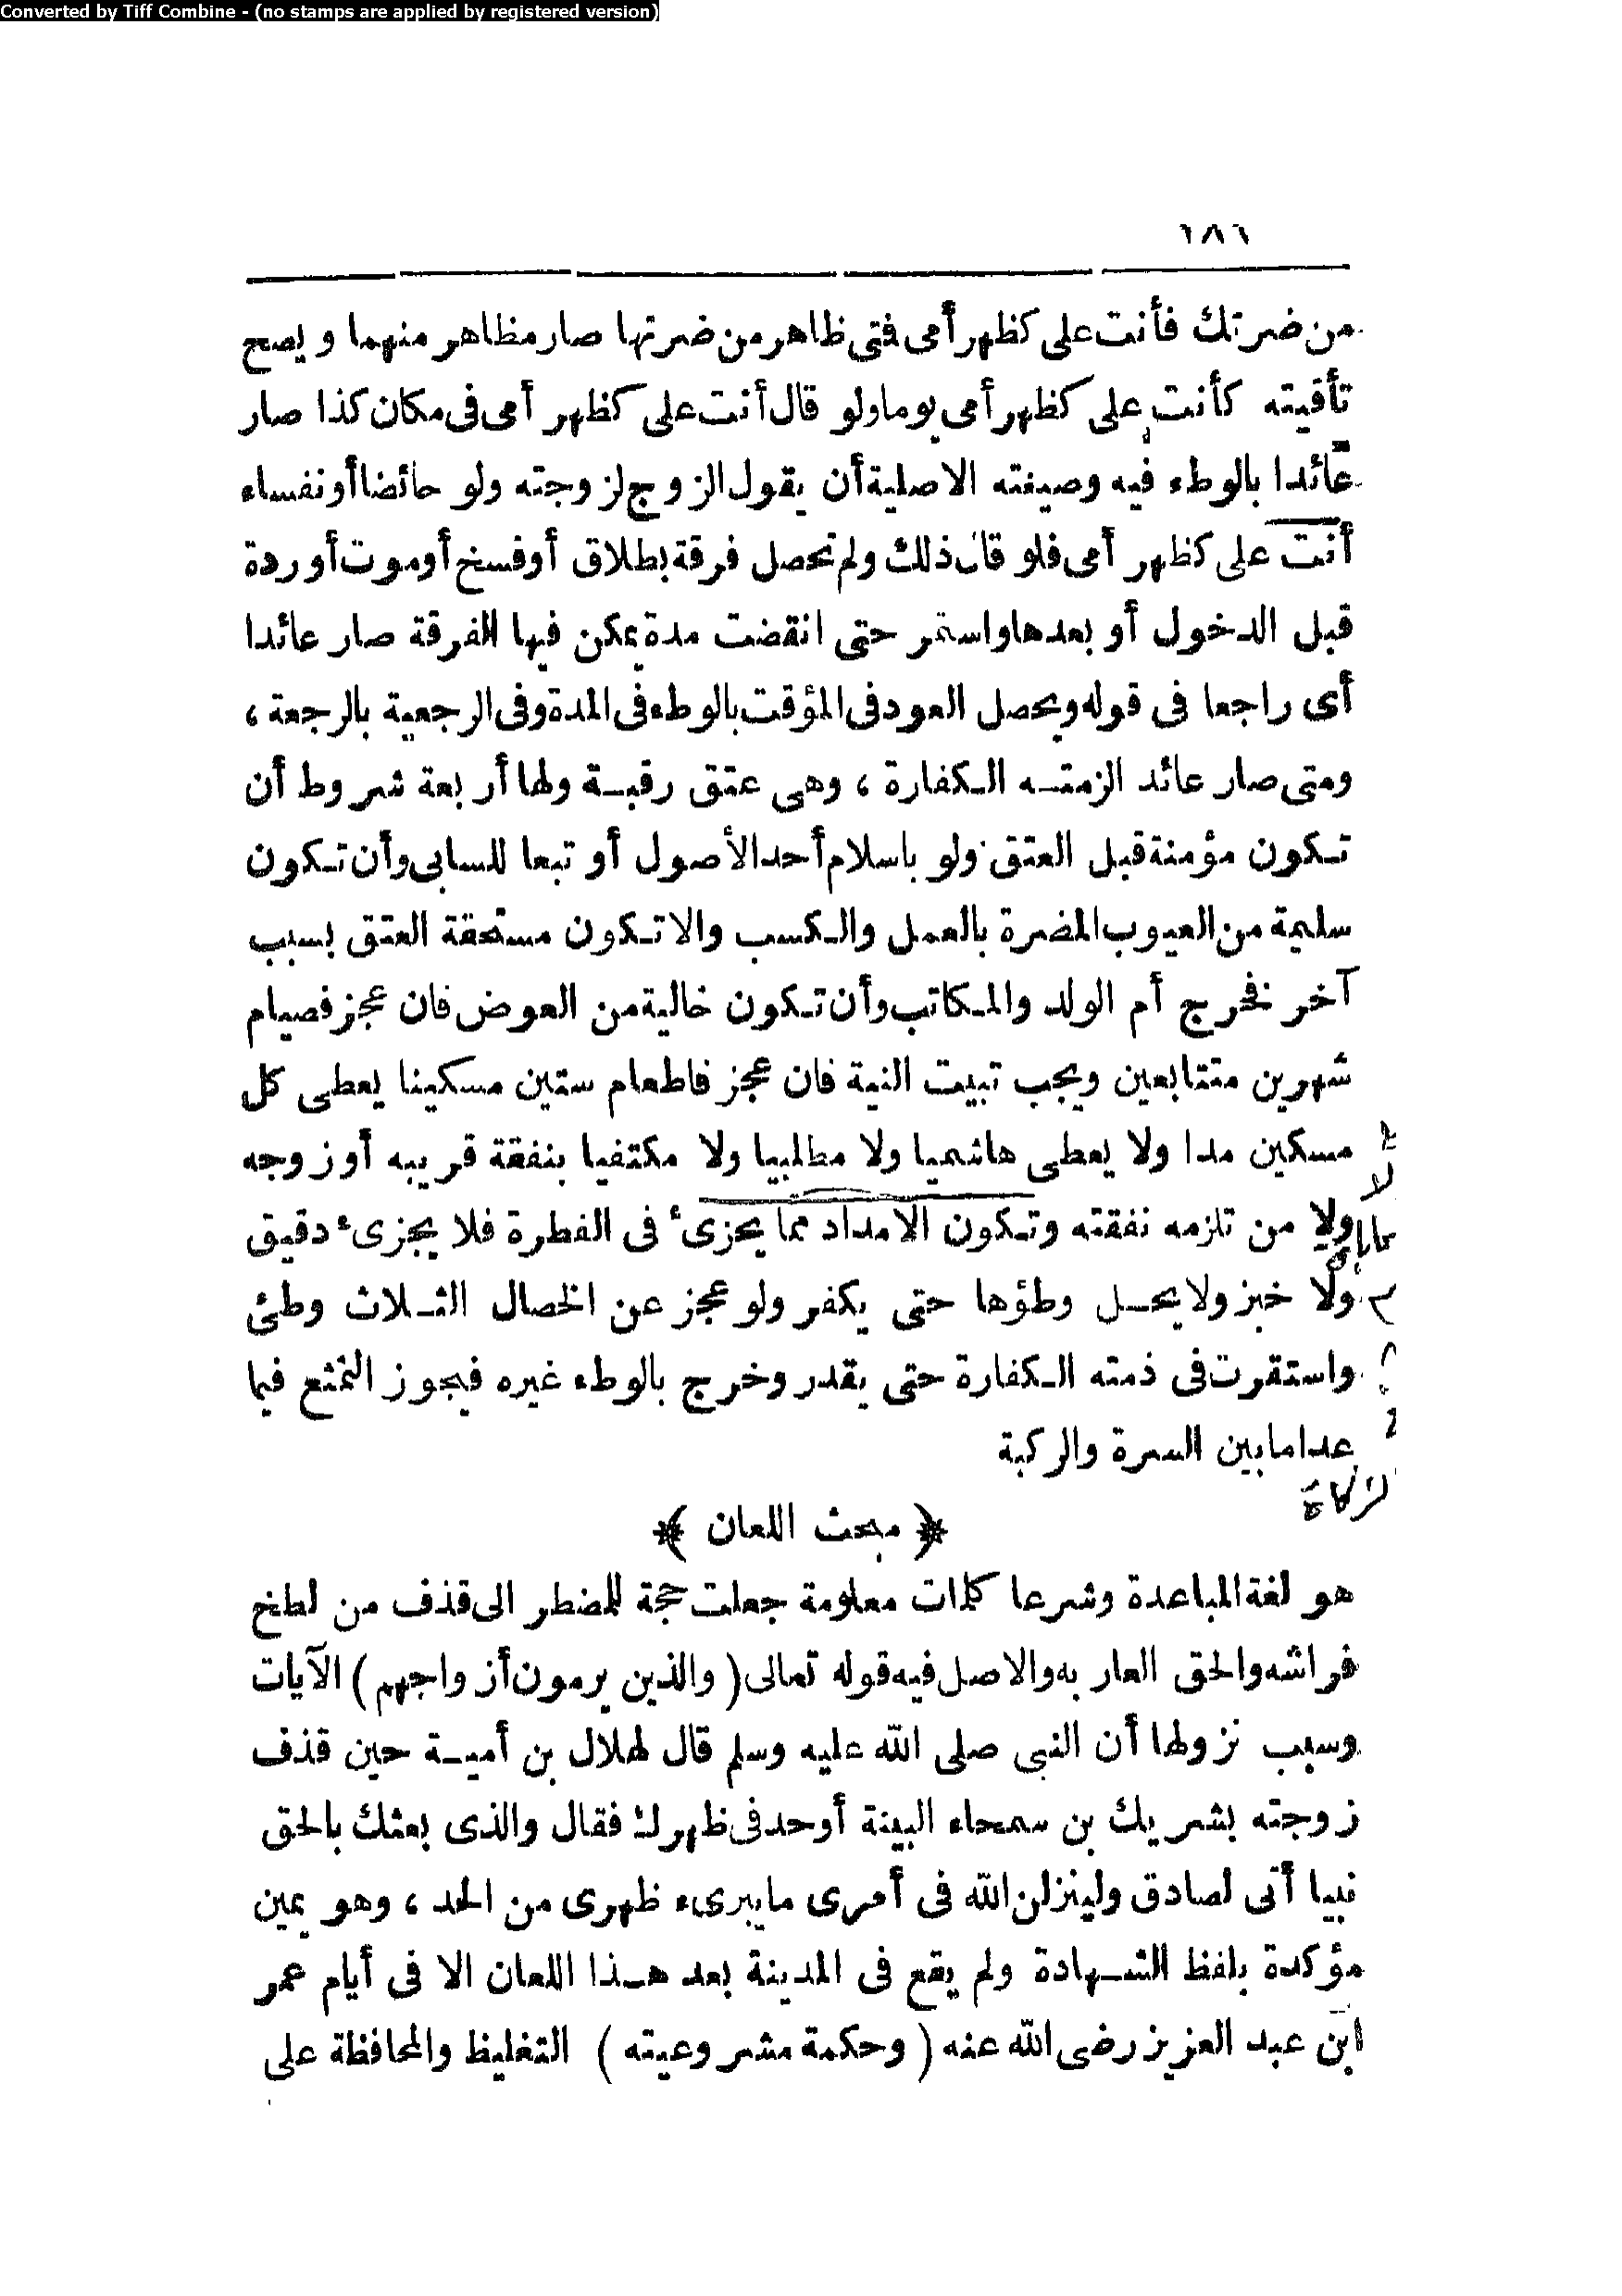 Converted by Tiff Combine - (no stamps are applied by registered version)
١٨٦
من ضرتك فأنت على كظهر أمى فتى ظاهر من ضرتها صار مظاهر منهما ويصح
تأقيته كأنت على كظهر أمى يوما ولو قال أنت على كظهر أمى فى مكان كذا صار
عائدا بالوطء فيه وصيغته الاصلية أن يقول الزوج لزوجته ولو حائضا أو نفساء
أنت على كظهر أمى فلو قال ذلك ولم تحصل فرقة بطلاق أو فسخ أو موت أو ردة
قبل الدخول أو بعدها واستمر حتى انقضت مدة يمكن فيها الفرقة صار عائدا
أى راجعا فى قوله ويحصل العود فى المؤقت بالوطء فى المدة وفى الرجعية بالرجعة ،
ومتى صار عائد الزمته الكفارة ، وهى عتق رقبة ولها أربعة شروط أن
تكون مؤمنة قبل العتق ولو باسلام أحد الأصول أو تبعا للسابى وأن تكون
سليمة من العيوب المضرة بالعمل والكسب والا تكون مستحقة العتق بسبب
آخر فخرج أم الولد والمكاتب وأن تكون خالية من العوض فان عجز فصيام
شهرين متتابعين ويجب تبيت النية فان عجز فاطعام ستين مسكينا يعطى كل
مسكين مدا ولا يعطى هاشميا ولا مطلبيا ولا مكتفيا بنفقة قريبه أو زوجه
ولا من تلزمه نفقته وتكون الامداد مما يجزىء فى الفطرة فلا يجزىء دقيق
ولا خبز ولا يحل وطؤها حتى يكفر ولو عجز عن الخصال الثلاث وطئ
واستقرت فى ذمته الكفارة حتى يقدر وخرج بالوطء غيره فيجوز التمتع فيما
عدا ما بين السرة والركبة
﴿ مبحث اللعان ﴾
هو لغة المباعدة وشرعا كلمات معلومة جعلت حجة للمضطر الى قذف من لطخ
فراشه والحق العار به والاصل فيه قوله تعالى ( والذين يرمون أزواجهم ) الآيات
وسبب نزولها أن النبى صلى الله عليه وسلم قال لهلال بن أمية حين قذف
زوجته بشريك بن سمحاء البينة أو حد فى ظهرك فقال والذى بعثك بالحق
نبيا أنى لصادق ولينزلن الله فى أمرى ما يبرىء ظهرى من الحد ، وهو يمين
مؤكدة بلفظ الشهادة ولم يقع فى المدينة بعد هذا اللعان الا فى أيام عمر
ابن عبد العزيز رضى الله عنه ( وحكمة مشروعيته ) التغليظ والمحافظة على